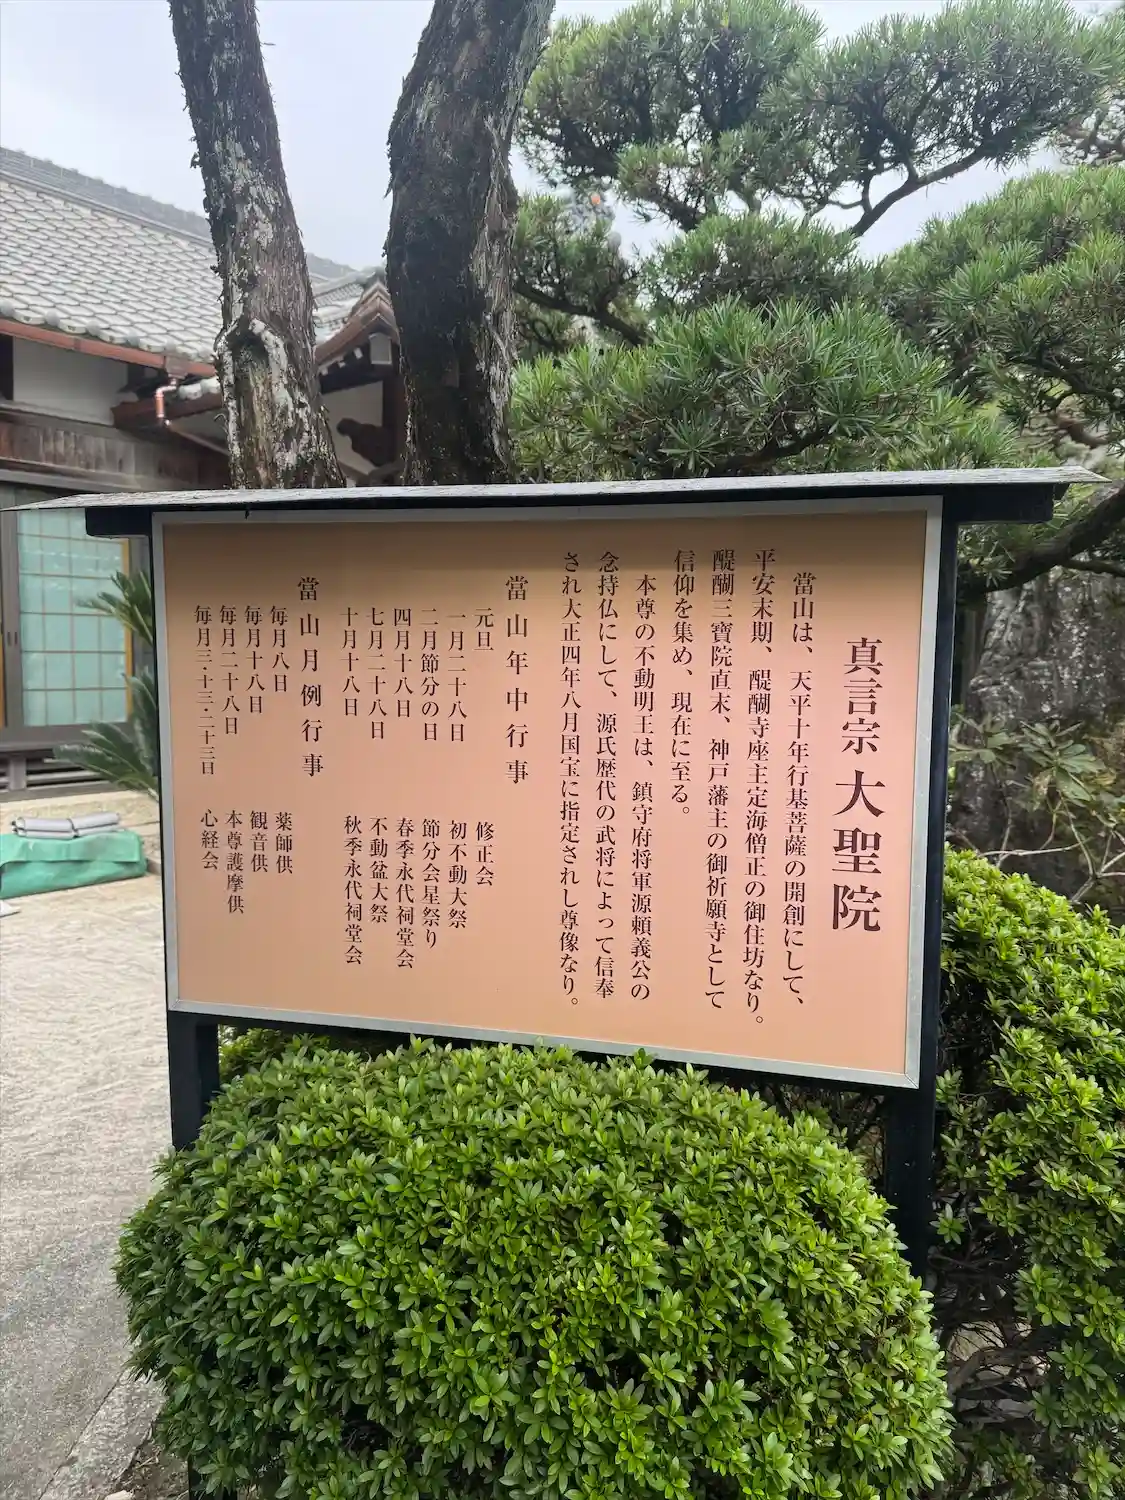 真言宗 大聖院
當山は、天平十年行基菩薩の開創にして、
平安末期、醍醐寺座主定海僧正の御住坊なり。
醍醐三寶院直末、神戸藩主の御祈願寺として
信仰を集め、現在に至る。
本尊の不動明王は、鎮守府将軍源頼義公の
念持仏にして、源氏歴代の武将によって信奉
され大正四年八月国宝に指定されし尊像なり。
當山年中行事
元旦 修正会
一月二十八日 初不動大祭
二月節分の日 節分会星祭り
四月十八日 春季永代祠堂会
七月二十八日 不動盆大祭
十月十八日 秋季永代祠堂会
當山月例行事
毎月八日 薬師供
毎月十八日 観音供
毎月二十八日 本尊護摩供
毎月三・十三・二十三日 心経会